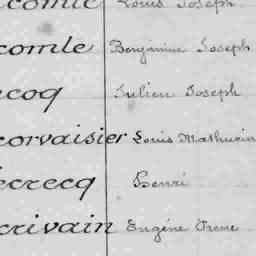 comte Louis Joseph
comte Benjamine Joseph
ecoq Julien Joseph
corvaisier Louis Mathurin
ecrecq Henri
crivain Eugène Pierre